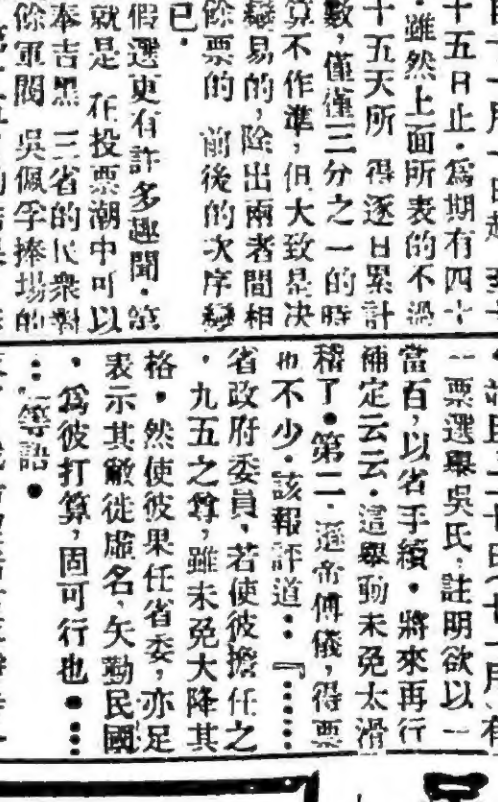 十五日止．爲期有四十
．雖然上面所表的不過
十五天所 得逐日累計
數，僅僅三分之一的時
算不作準，但大致是决
變易的，除出兩者間相
餘票的 前後的次序變
已．
假選更有許多趣聞．第
就是 在投票潮中可以
奉吉黑 三省的民衆對
餘軍閥 吳佩孚捧場的
一票選舉吳氏，註明欲以一
當百，以省手續．將來再行
補定云云．這舉動未免太滑
稽了．第二．遜帝傅儀，得票
也不少．該報評道：『……
省政府委員，若使彼擔任之
．九五之尊，雖未免大降其
格．然使彼果任省委，亦足
表示其敝徙虛名，矢勤民國
．爲彼打算，固可行也．…
…等語．